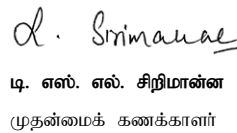 L. Sirimanne
டி. எஸ். எல். சிறிமான்ன
முதன்மைக் கணக்காளர்